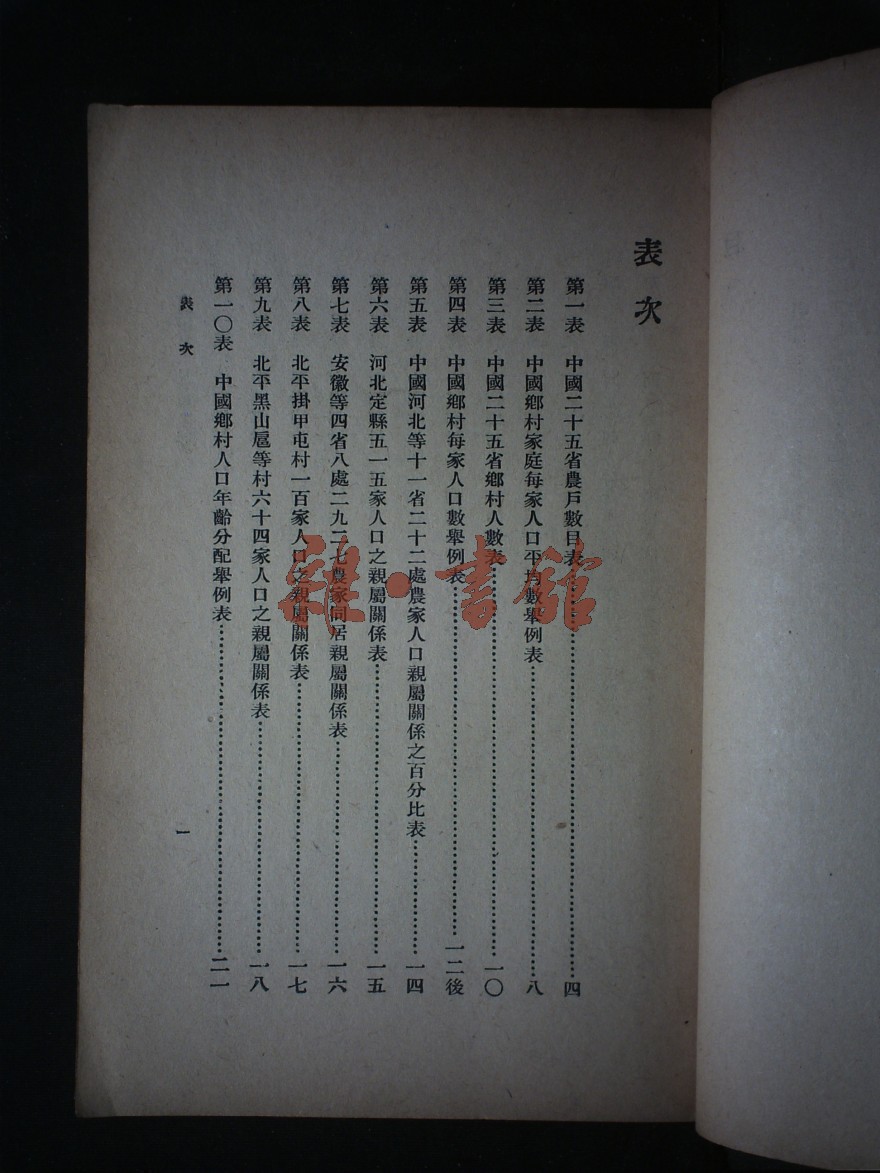 表次
第一表　中國二十五省農戶數目表……四
第二表　中國鄉村家庭每家人口平均數舉例表……八
第三表　中國二十五省鄉村人數表……一〇
第四表　中國鄉村每家人口數舉例表……一二後
第五表　中國河北等十一省二十二處農家人口親屬關係之百分比表……一四
第六表　河北定縣五一五家人口之親屬關係表……一五
第七表　安徽等四省八處二九二七農家同居親屬關係表……一六
第八表　北平掛甲屯村一百家人口之親屬關係表……一七
第九表　北平黑山扈等村六十四家人口之親屬關係表……一八
第一〇表　中國鄉村人口年齡分配舉例表……二一
表次
一
雜·書館